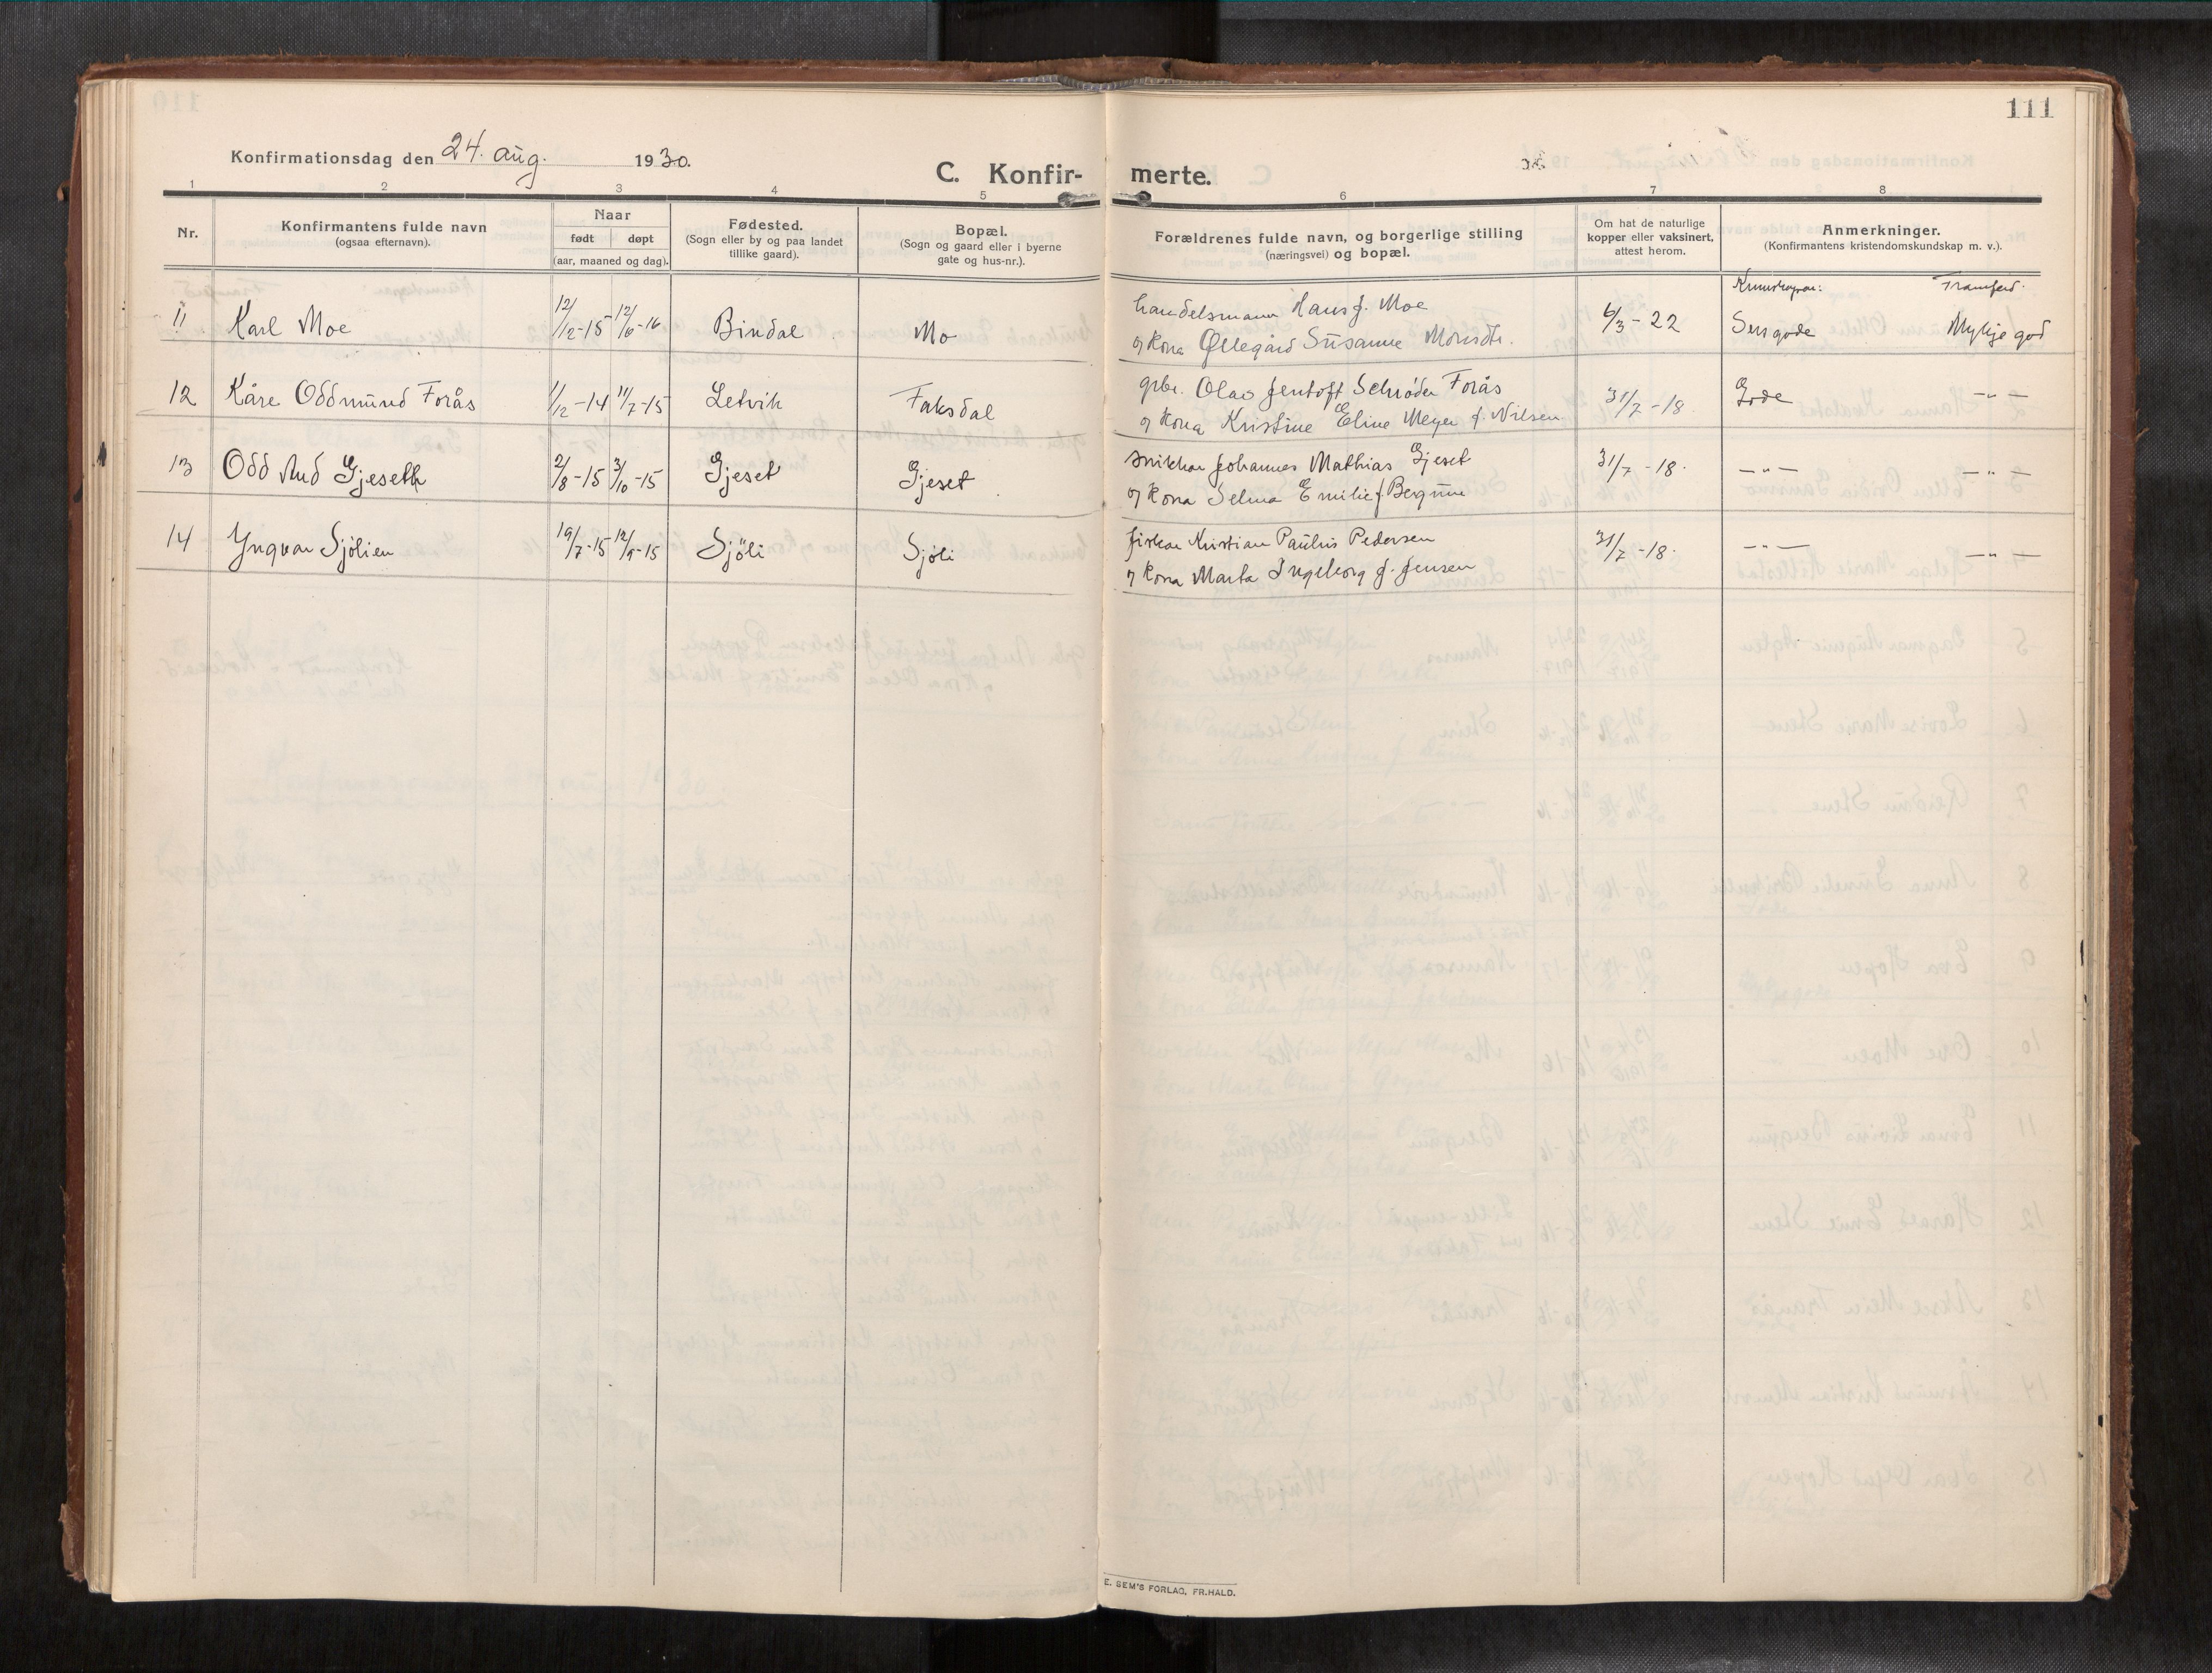 111
Konfirmationsdag den 24. aug. 1930.
C. Konfir- merte.
1 2 3 4 5 6 7 8
Nr.
Konfirmantens fulde navn
(ogsaa efternavn).
Naar
født døpt
(aar, maaned og dag).
Fødested.
(Sogn eller by og paa landet
tillike gaard).
Bopæl.
(Sogn og gaard eller i byerne
gate og hus-nr.).
Forældrenes fulde navn, og borgerlige stilling
(næringsvei) og bopæl.
Om hat de naturlige
kopper eller vaksinert,
attest herom.
Anmerkninger.
(Konfirmantens kristendomskundskap m. v.).
Kunnskapar: Framferd.
11 Karl Moe 12/12-15 12/6-16 Bindal Mo
handelsmann Hans J. Moe
og kona Øllegård Susanne Monsdtr.
6/3-22 Sers gode Mykje god
12 Kåre Oddmund Forås 1/12-14 11/7-15 Letvik Faksdal
gbr. Olav Jentoft Schrøder Forås
og kona Kristine Eline Meyer f. Nilsen
31/7-18. Gode —"—
13 Odd Aud Gjeseth 2/8-15 3/10-15 Gjeset Gjeset
snikkar Johannes Mathias Gjeset
og kona Selma Emilie f. Bergum
31/7-18. —"— —"—
14 Yngvar Sjölien 19/7-15 12/9-15 Sjöli Sjöli
fiskar Kristian Paulus Pedersen
og kona Marta Ingeborg f. Jensen
31/7-18. —"— —"—
E. SEM'S FORLAG, FR.HALD.